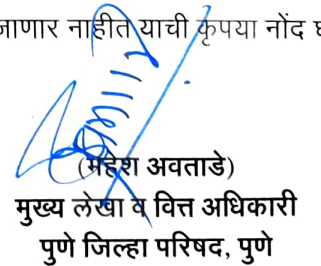 जाणार नाहीत याची कृपया नोंद
(महेश अवताडे)
मुख्य लेखा व वित्त अधिकारी
पुणे जिल्हा परिषद, पुणे